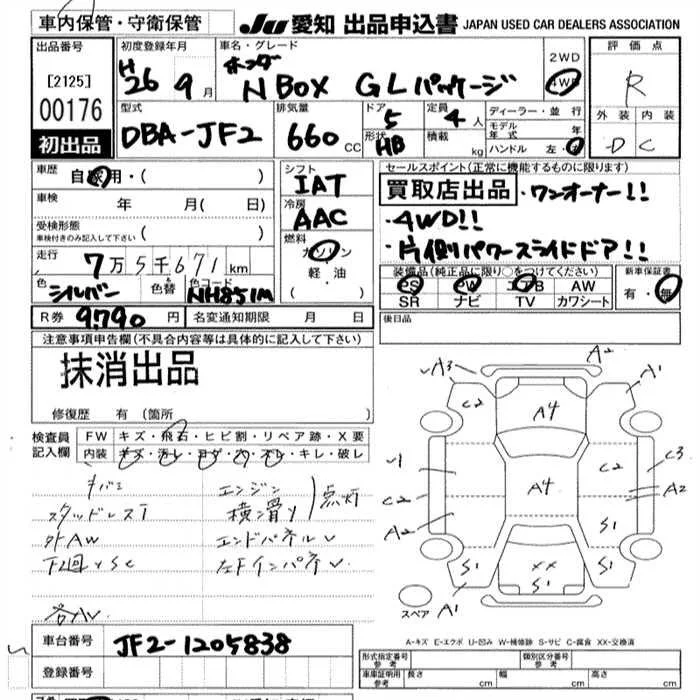 車内保管・守衛保管
JU 愛知 出品申込書 JAPAN USED CAR DEALERS ASSOCIATION
出品番号
[2125]
00176
初出品
初度登録年月
H26 9月
車名・グレード
ホンダ
N BOX GLパッケージ
2WD
4WD
評価点
R
外装 内装
D C
型式
DBA-JF2
排気量
660 CC
ドア 5
形状 HB
定員 4人
積載 kg
ディーラー・並行
モデル年式 年
ハンドル 左・右
車歴
自家用・( )
車検
年 月( 日)
受検形態
車検付きのみ記入して下さい ( )
走行
7万5千671km
色
シルバー
色替
色コード
NH851M
シフト
IAT
冷房
AAC
燃料
ガソリン
軽・油
( )
セールスポイント(正常に機能するものに限ります)
買取店出品
・ワンオーナー!!
・4WD!!
・片側パワースライドドア!!
装備品(純正品に限り○をつけてください)
PS PW エアB AW
SR ナビ TV カワシート
新車保証書
有・無
R券 9790 円
名変通知期限 月 日
後日品
注意事項申告欄(不具合内容等は具体的に記入して下さい)
抹消出品
修復歴 有(箇所 )
検査員記入欄
FW キズ・飛石・ヒビ割・リペア跡・X要
内装 キズ・汚レ・コゲ・穴・スレ・キレ・破レ
スタッドレスT
外AW
エンジン
横滑り
点灯
エンドパネルU
左Fインパネル
A3
A2
A1
C2
A4
C2
C3
A2
A4
C2
A2
S1
S1
XX
S1
S1
A1
スペア
A-キズ E-エクボ U-凹み W-補修跡 S-サビ C-腐食 XX-交換済
車台番号 JF2-1205838
登録番号
形式指定番号 参考
類別区分番号 参考
車庫証明用 参考
長さ cm 幅 cm 高さ cm